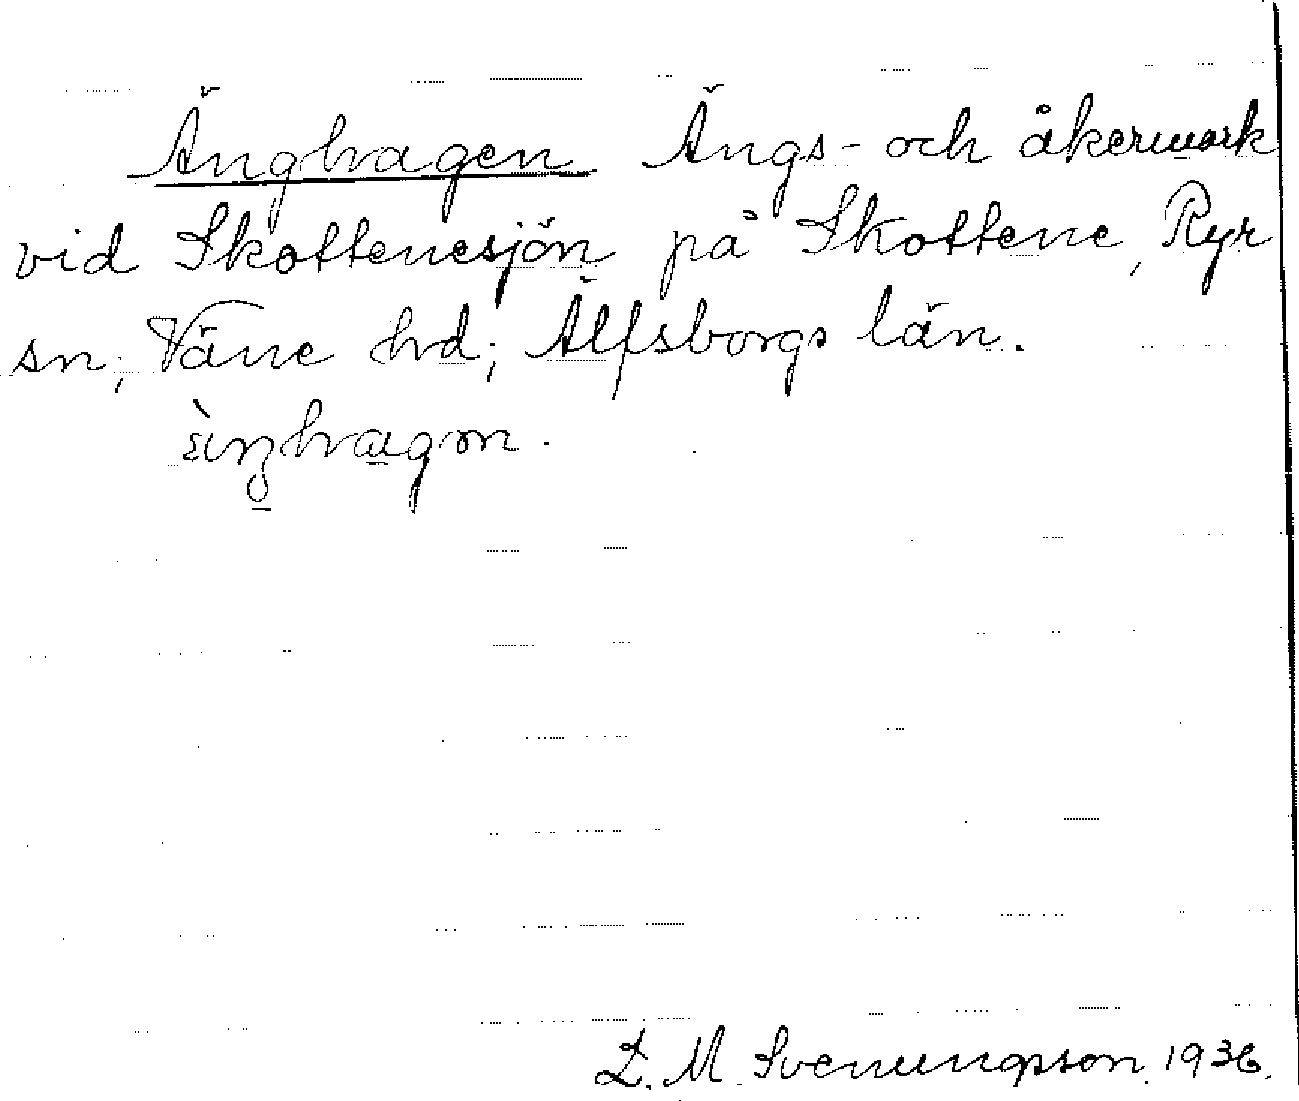 Änghagen Ängs- och åkermark
vid Skottenesjön på Skottene, Ryr
sn, Väne hd, Älfsborgs län.
L. M. Svenungsson. 1936.